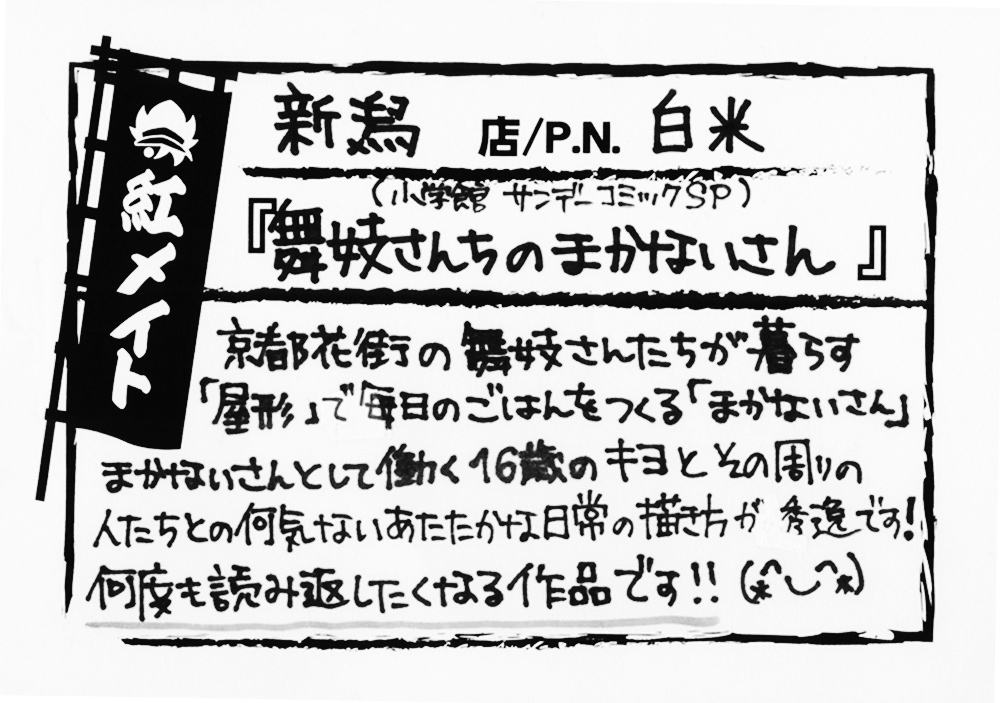 紅メイト
新潟 店/P.N. 白米
(小学館 サンデーコミックSP)
『舞妓さんちのまかないさん』
京都花街の舞妓さんたちが暮らす
「屋形」で毎日のごはんをつくる「まかないさん」
まかないさんとして働く16歳のキヨとその周りの
人たちとの何気ないあたたかな日常の描き方が秀逸です!
何度も読み返したくなる作品です!! (*^‿^*)